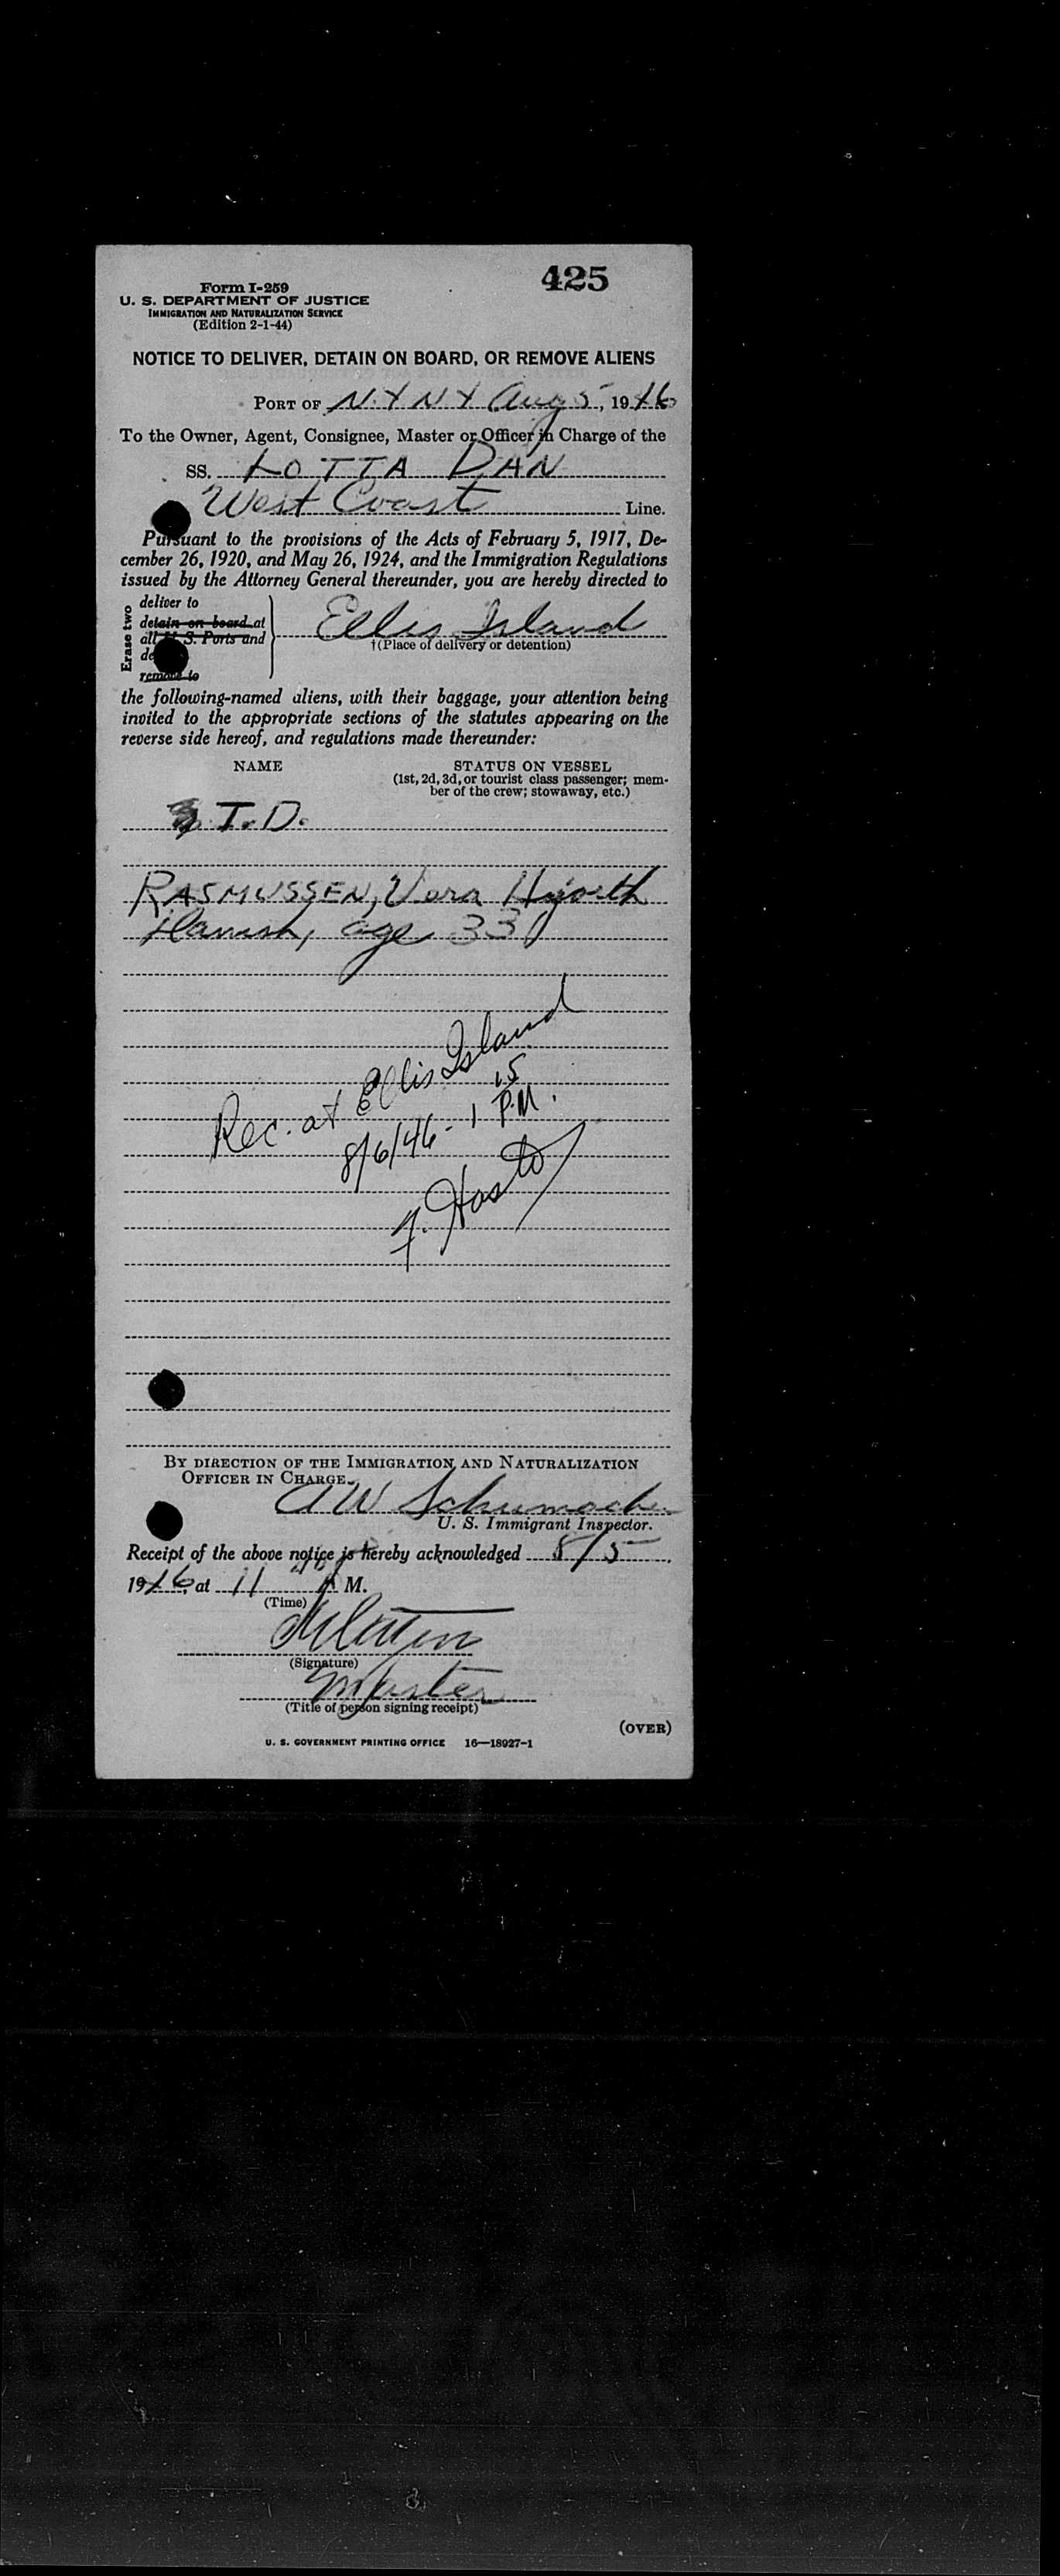 425
Form I-259
U. S. DEPARTMENT OF JUSTICE
IMMIGRATION AND NATURALIZATION SERVICE
(Edition 2-1-44)
NOTICE TO DELIVER, DETAIN ON BOARD, OR REMOVE ALIENS
PORT OF N.Y N Y Aug 5, 1946
To the Owner, Agent, Consignee, Master or Officer in Charge of the
SS. LOTTA DAN
West Coast Line.
Pursuant to the provisions of the Acts of February 5, 1917, De-
cember 26, 1920, and May 26, 1924, and the Immigration Regulations
issued by the Attorney General thereunder, you are hereby directed to
Erase two
deliver to
detain on board at
all U. S. Ports and
remove to
Ellis Island
†(Place of delivery or detention)
the following-named aliens, with their baggage, your attention being
invited to the appropriate sections of the statutes appearing on the
reverse side hereof, and regulations made thereunder:
NAME STATUS ON VESSEL
(1st, 2d, 3d, or tourist class passenger; mem-
ber of the crew; stowaway, etc.)
T.D.
RASMUSSEN, Vera
Danish, age 33
Rec. at Ellis Island
8/6/46 - 1 15 P.M.
F. Hosto
BY DIRECTION OF THE IMMIGRATION AND NATURALIZATION
OFFICER IN CHARGE.
A W Schumacher
U. S. Immigrant Inspector.
Receipt of the above notice is hereby acknowledged 8/5,
1946, at 11 A M.
(Time)
(Signature)
Master
(Title of person signing receipt)
(OVER)
U. S. GOVERNMENT PRINTING OFFICE 16—18927-1